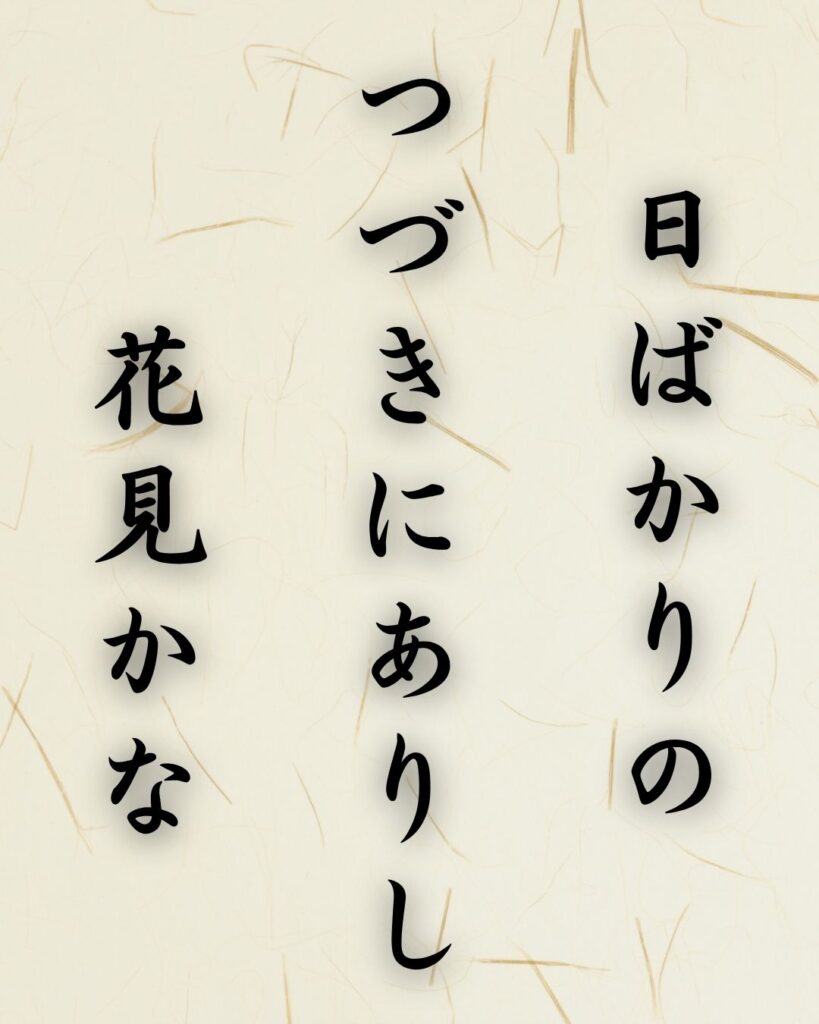 日ばかりの
つづきにありし
花見かな